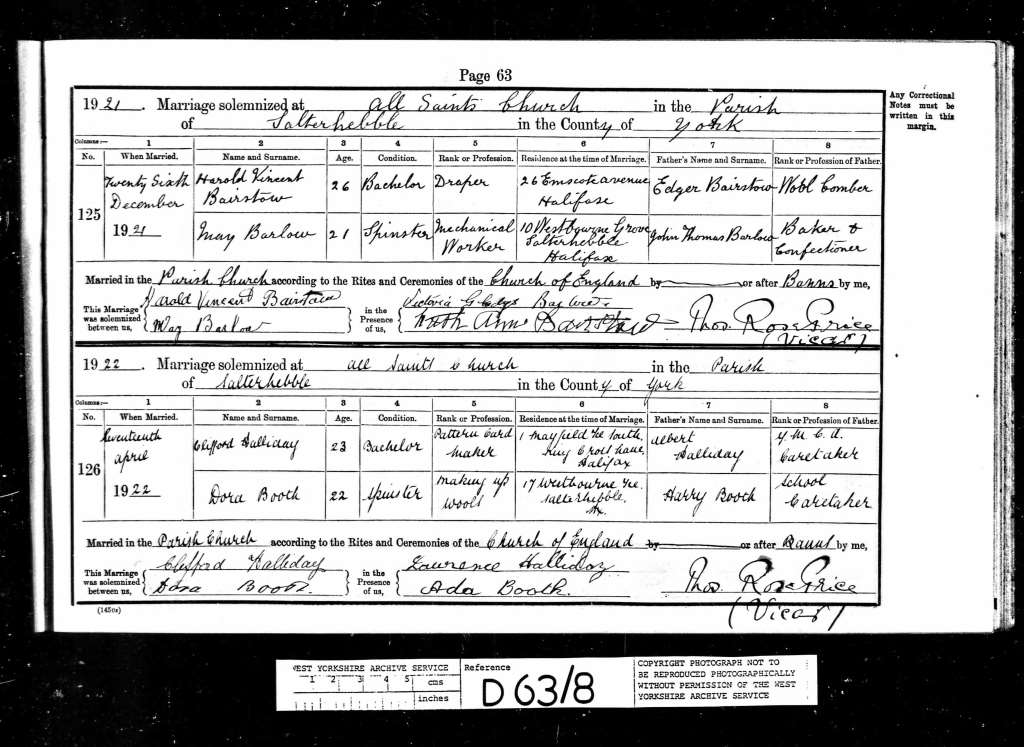 Page 63
Any Correctional
Notes must be
written in this
margin.
1921. Marriage solemnized at All Saints Church in the Parish
of Salterhebble in the County of York
Columns:— 1 2 3 4 5 6 7 8
No. When Married. Name and Surname. Age. Condition. Rank or Profession. Residence at the time of Marriage. Father's Name and Surname. Rank or Profession of Father.
125
Twenty Sixth
December
1921
Harold Vincent
Bairstow
26 Bachelor Draper
26 Emscote avenue
Halifax
Edger Bairstow Wool Comber
May Barlow 21 Spinster
Mechanical
Worker
10 Westbourne Grove
Salterhebble
Halifax
John Thomas Barlow
Baker &
Confectioner
Married in the Parish Church according to the Rites and Ceremonies of the Church of England by or after Banns by me,
This Marriage
was solemnized
between us,
Harold Vincent Bairstow
May Barlow
in the
Presence
of us,
Victoria Gladys
Ruth Ann Bairstow
Thos. Rose Price
(Vicar)
1922. Marriage solemnized at all saints church in the Parish
of Salterhebble in the County of York
Columns:— 1 2 3 4 5 6 7 8
No. When Married. Name and Surname. Age. Condition. Rank or Profession. Residence at the time of Marriage. Father's Name and Surname. Rank or Profession of Father.
126
Seventeenth
april
1922
Clifford Halliday 23 Bachelor
Pattern Card
maker
1 mayfield Tce South,
King Cross Lane,
Halifax
albert
Halliday
Y. M. C. A.
Caretaker
Dora Booth 22 Spinster
making up
wools
17 Westbourne Tce.
Salterhebble.
Hx.
Harry Booth
School
Caretaker
Married in the Parish Church according to the Rites and Ceremonies of the Church of England by or after Banns by me,
This Marriage
was solemnized
between us,
Clifford Halliday
Dora Booth.
in the
Presence
of us,
Lawrence Halliday
Ada Booth.
Thos. Rose Price
(Vicar)
WEST YORKSHIRE ARCHIVE SERVICE
1 2 3 4 5 cms
inches
Reference
D63/8
COPYRIGHT PHOTOGRAPH NOT TO
BE REPRODUCED PHOTOGRAPHICALLY
WITHOUT PERMISSION OF THE WEST
YORKSHIRE ARCHIVE SERVICE